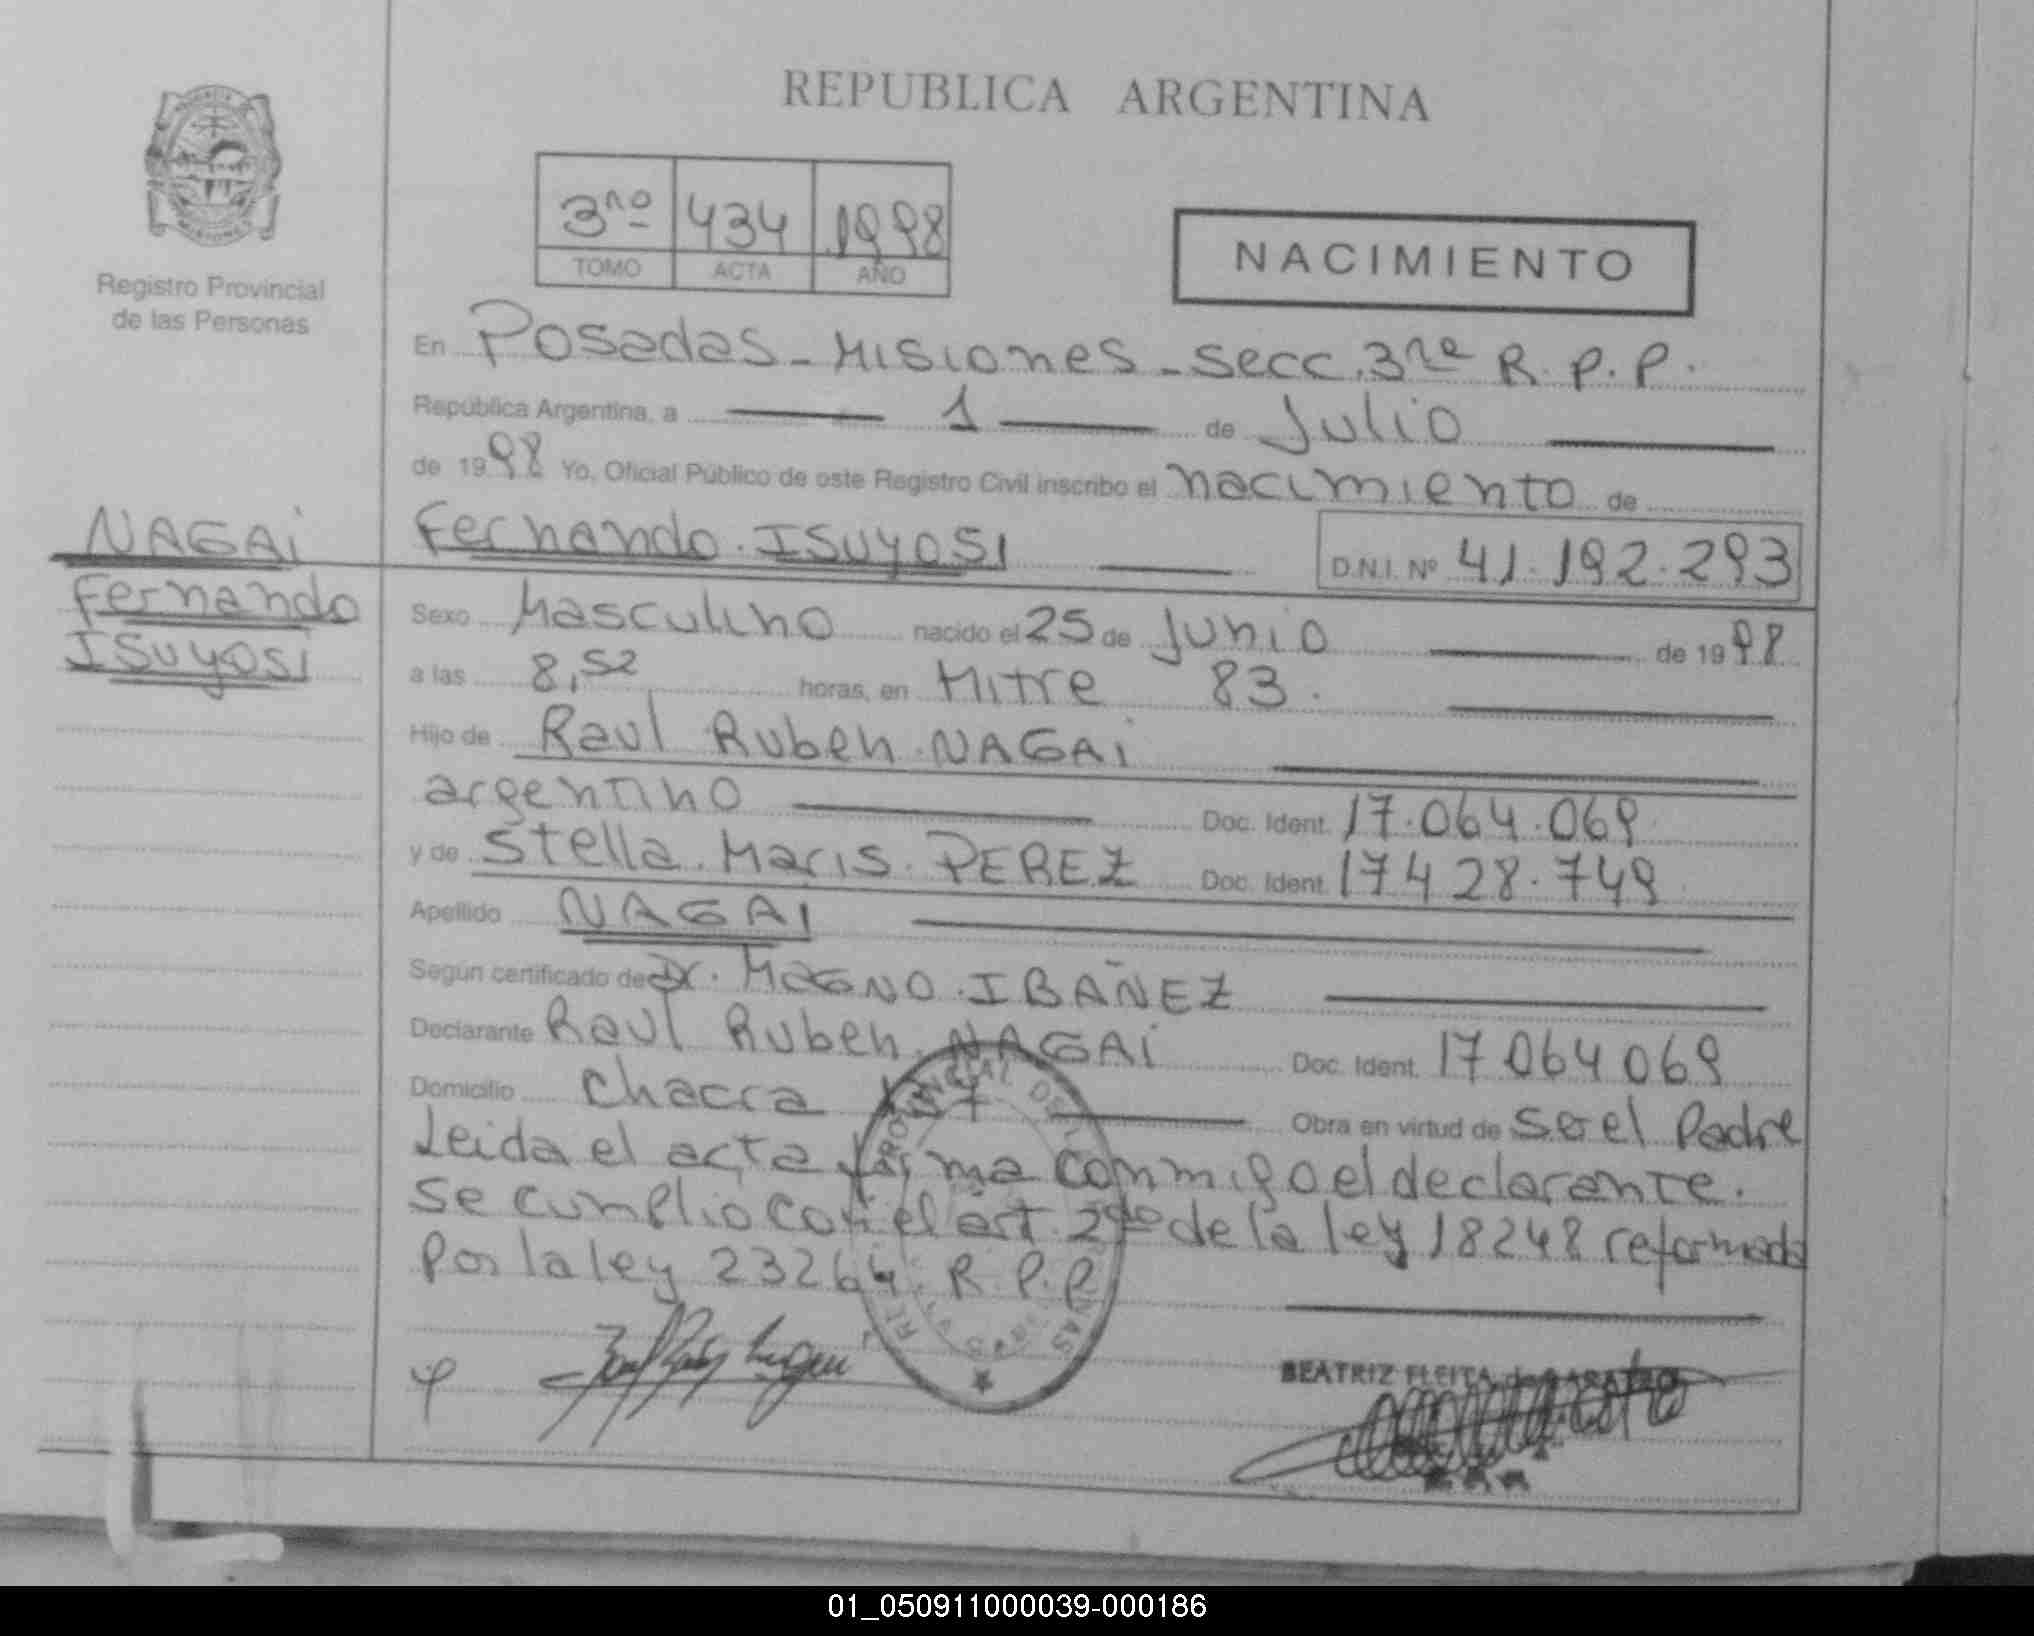 REPUBLICA ARGENTINA
Registro Provincial
de las Personas
3ro 434 1998
TOMO ACTA AÑO
NACIMIENTO
En Posadas - Misiones - secc. 3ra R. P. P.
República Argentina, a 1 de Julio
de 1998 Yo, Oficial Público de este Registro Civil inscribo el nacimiento de
NAGAi
Fernando ISUYOSI
Fernando ISUYOSI
D.N.I. Nº 41.192.293
Sexo Masculino nacido el 25 de Junio de 1998
a las 8,52 horas, en Mitre 83.
Hijo de Raul Ruben NAGAi
argentino Doc. Ident. 17.064.069
y de Stella Maris PEREZ Doc. Ident. 17428.749
Apellido NAGAI
Según certificado de Dr. MAGNO IBAÑEZ
Declarante Raul Ruben NAGAi Doc. Ident. 17064069
Domicilio Chacra Obra en virtud de ser el Padre
Leida el acta firma conmigo el declarante.
Se cumplio con el art. 2do de la ley 18248 reformada
Por la ley 23264. R. P. P
BEATRIZ FLEITA de
01_050911000039-000186